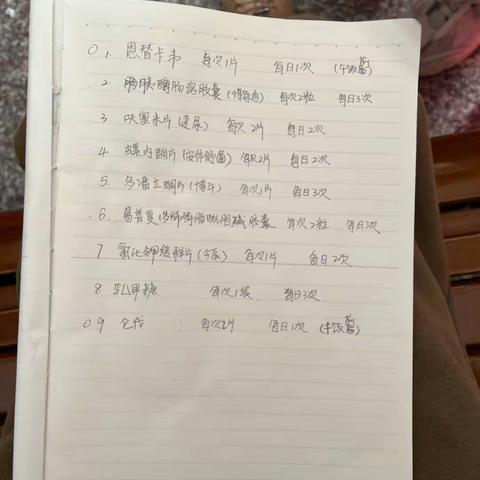 01. 恩替卡韦 每次1片 每日1次 (午饭前)
2. 胰酶肠溶胶囊(得每通) 每次2粒 每日3次
3 呋塞米片(速尿) 每次2片 每日2次
4 螺内酯片(安体舒通) 每次2片 每日2次
5. 多潘立酮片(博斗) 每次1片 每日3次
6. 易善复(多烯磷脂酰胆碱胶囊 每次2粒 每日3次
7 氯化钾缓释片 每次1片 每日2次
8 乳果糖 每次1袋 每日3次
09. 每次2片 每日1次 (午饭前)